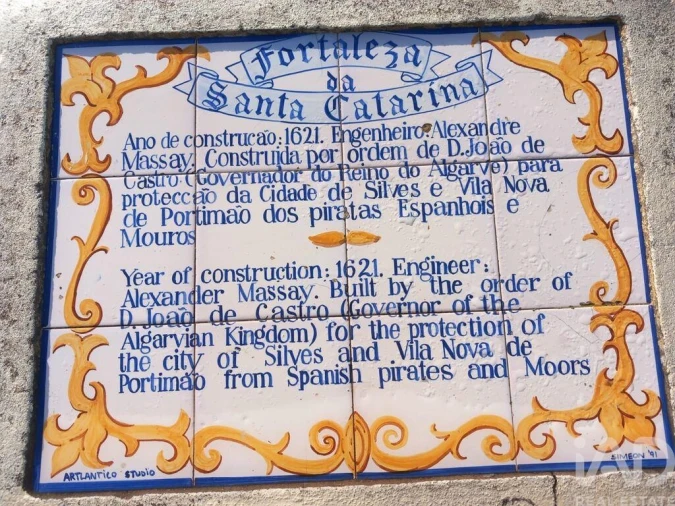 Fortaleza
da
Santa Catarina
Ano de construcao: 1621. Engenheiro: Alexandre
Massay. Construida por ordem de D.João de
Castro (Governador do Reino do Algarve) para
protecção da Cidade de Silves e Vila Nova
de Portimão dos piratas Espanhois e
Mouros
Year of construction: 1621. Engineer:
Alexander Massay. Built by the order of
D.João de Castro (Governor of the
Algarvian Kingdom) for the protection of
the city of Silves and Vila Nova de
Portimão from Spanish pirates and Moors
ARTLANTICO STUDIO
SIMEON '91
IAD
REAL ESTATE